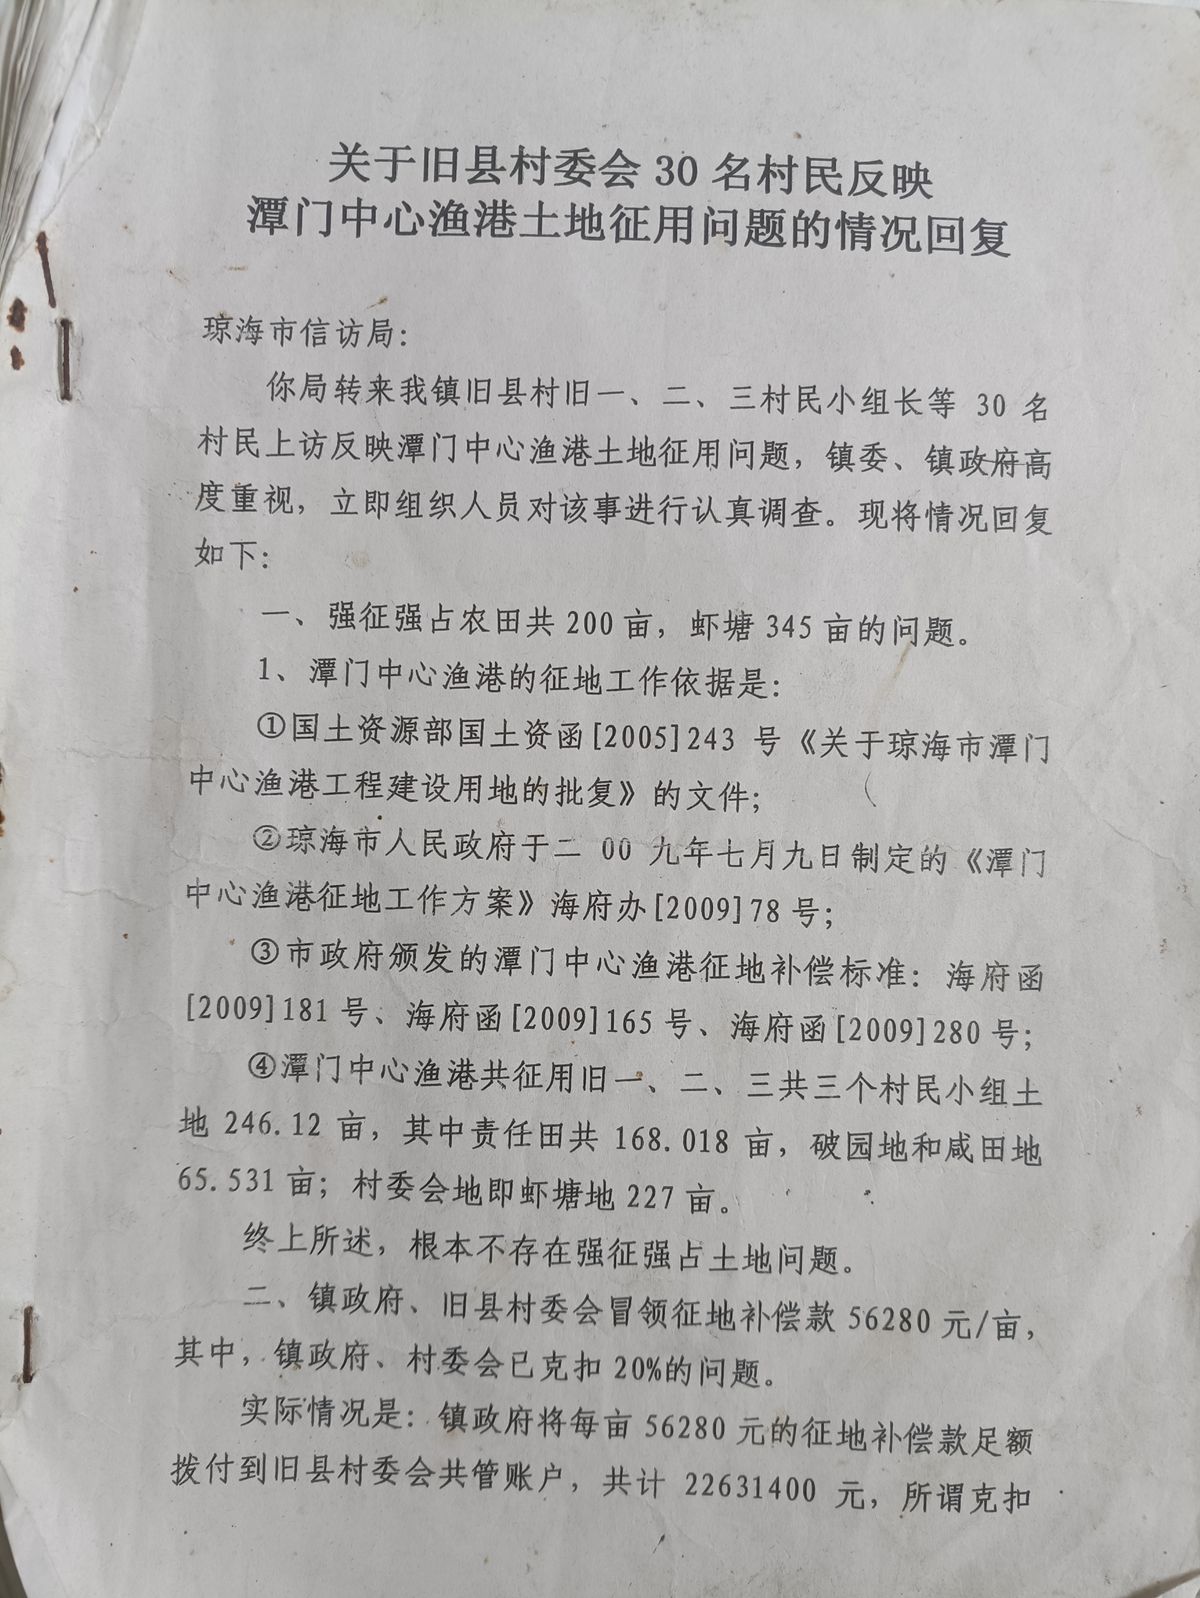 关于旧县村委会 30 名村民反映
潭门中心渔港土地征用问题的情况回复
琼海市信访局：
你局转来我镇旧县村旧一、二、三村民小组长等 30 名
村民上访反映潭门中心渔港土地征用问题，镇委、镇政府高
度重视，立即组织人员对该事进行认真调查。现将情况回复
如下：
一、强征强占农田共 200 亩，虾塘 345 亩的问题。
1、潭门中心渔港的征地工作依据是：
①国土资源部国土资函[2005]243 号《关于琼海市潭门
中心渔港工程建设用地的批复》的文件；
②琼海市人民政府于二 00 九年七月九日制定的《潭门
中心渔港征地工作方案》海府办[2009]78 号；
③市政府颁发的潭门中心渔港征地补偿标准：海府函
[2009]181 号、海府函[2009]165 号、海府函[2009]280 号；
④潭门中心渔港共征用旧一、二、三共三个村民小组土
地 246.12 亩，其中责任田共 168.018 亩，破园地和咸田地
65.531 亩；村委会地即虾塘地 227 亩。
终上所述，根本不存在强征强占土地问题。
二、镇政府、旧县村委会冒领征地补偿款 56280 元/亩，
其中，镇政府、村委会已克扣 20%的问题。
实际情况是：镇政府将每亩 56280 元的征地补偿款足额
拨付到旧县村委会共管账户，共计 22631400 元，所谓克扣